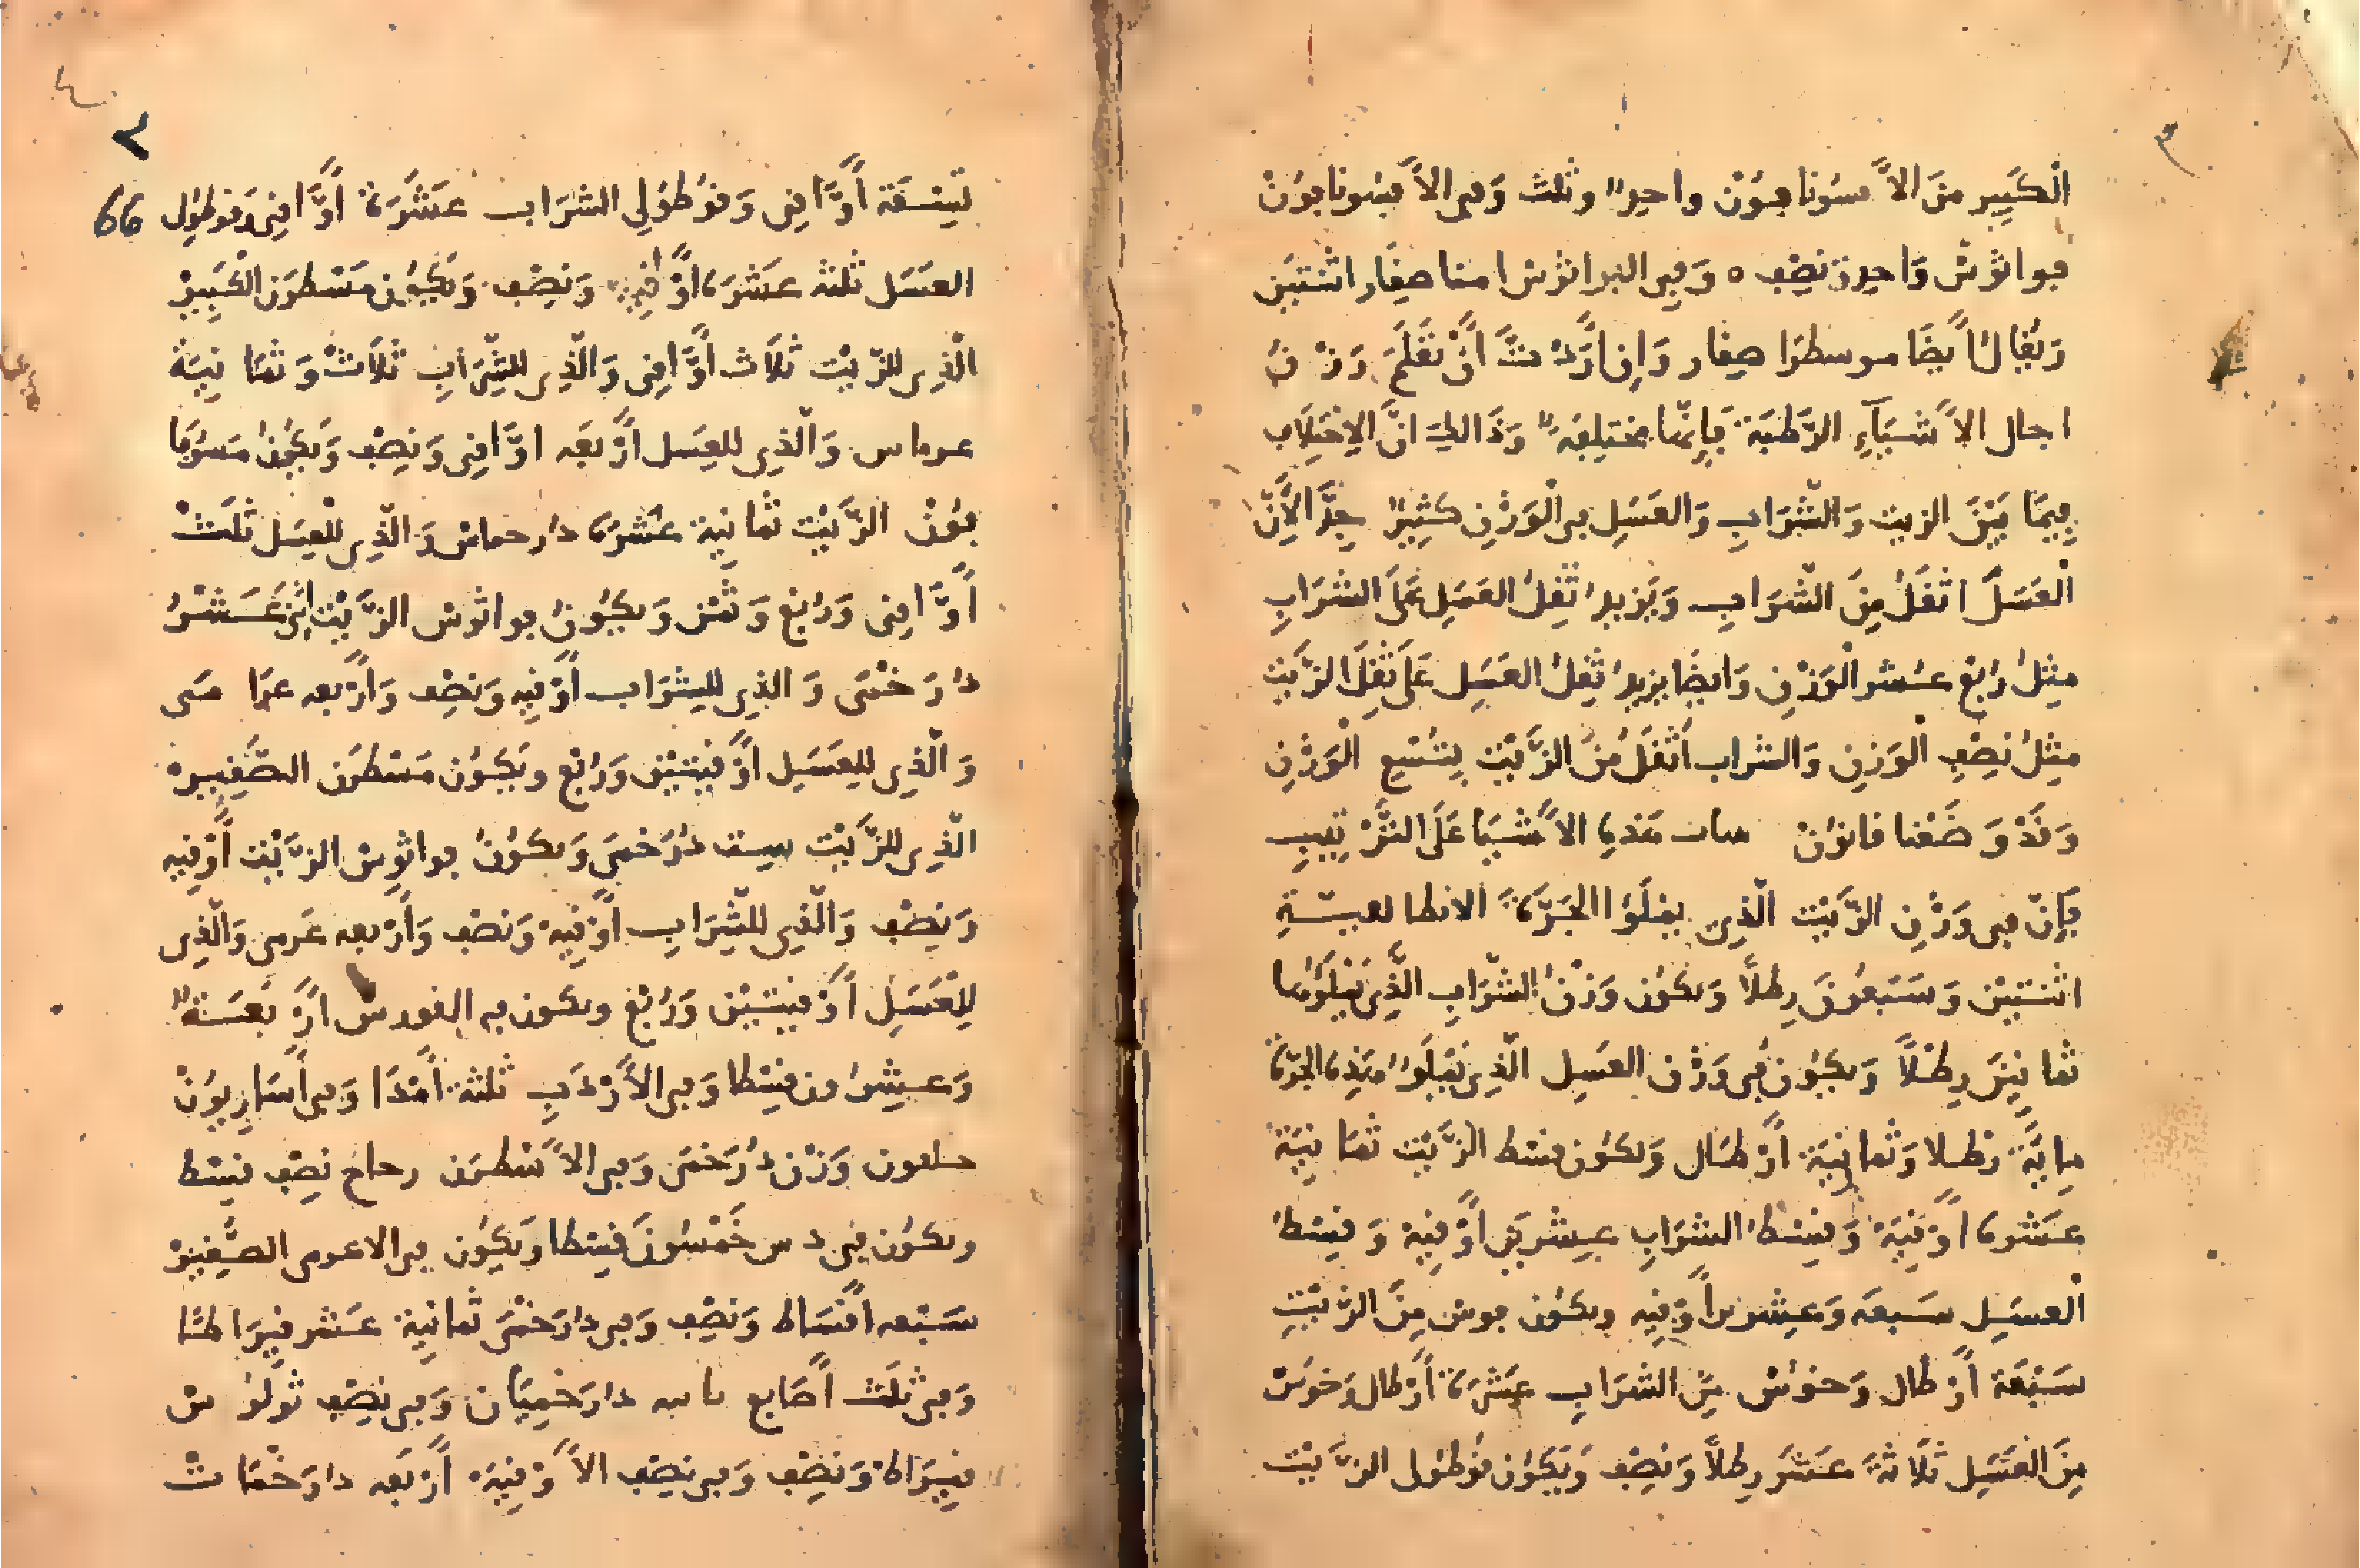 الْكَبِير مِنَ الأَسُونافُون واحد وثلث وفى الأَفسُونافُون
فواثوش وَاحدة نصْف ه وَفي الفراثوش امنا صغَار اثنتين
وَيُقال أَيضًا موسطرا صغار وَان أَرَدْتَ أَنْ تَعْلَمَ وَزْن
اجال الأَشيَآءِ الرَّطبَة فَإِنّها مختلفة وَذَالك انَّ الاِخْتِلَاف
فِيمَا بَيْنَ الزيت وَالشَّرَابِ وَالعَسَل في الْوَزْنِ كَثيرٌ جِدًّا لأَنَّ
الْعَسَلَ اثقَلُ مِنَ الشَّرَابِ وَيَزيدُ ثِقلُ العَسَل عَلَى الشرَابِ
مِثلُ رُبْع عُشر الْوَزْنِ وَايضًا يزيدُ ثِقلُ العَسَل عَلَى ثِقَلِ الزَّيت
مِثلُ نِصْفِ الْوَزنِ وَالشراب أَثقَلُ مِنَ الزَّيْت بِتُسْع الْوَزْنِ
وَقَدْ وَضَعْنا قانوُنْ هَذه الأَشيَا عَلَى التَّرْتِيبِ
فَإِنّ في وَزْنِ الزَّيْت الّذِي يَملَوُا الجَرَّة الانطالعيسة
اثنتيْن وَسَبْعُونَ رطلاً وَيكُون وَزْنُ الشَّرَابِ الَّذِي يَمْلَوُها
ثمانينَ رِطْلاً وَيكُون في وَزْن العَسِل الَّذي يَمْلَوُا هَذِه الجَرّة
مايَة رَطلا وَثَمانيَة أَرْطال وَيكُون قسط الزَّيْت ثمَانيَة
عَشرة اوْقيَة وَقِسْطُ الشَرَابِ عِشْرين أَوْقية وَقِسْطُ
الْعسَل سَبعَة وَعِشرين أَوقيه ويكُون فوس مِنَ الزَّيْتِ
سَبْعَة أَرْطال وَخوُس مِنَ الشرَابِ عَشرَة أَرْطال وَخوس
مِنَ العَسَل ثَلَاثَة عَشَر رِطلاً وَنصْف وَيَكُون قُوطُول الزَّيْت
تِسْعَة أَوَاقي وَقُوطُولِ الشرَاب عَشَرَة أَوَاقِي وَقوطُول
العَسَل ثلثة عَشرَة أَوْقية وَنِصْف وَيَكُون مَسْطرَن الْكَبِيرْ
الَّذِي للزَّيْت ثَلَاث أَوَاقي وَالَّذِي للشَّرَابِ ثَلَاثْ وَثَمَانيَة
عرماس وَالَّذِي للعسَل أَرْبعَه اوَاقي وَنِصْف وَيَكُونُ مَسُوفَا
فوُنْ الزَّيْت ثمانية عَشرَة دارحماس وَالَّذِي للْعسَل ثَلَثْ
أَوَاقي وَرُبْع وَثمْن وَيكُونُ فواثوس الزَّيْت اثنى عَشَرُ
دارَخْمَى وَالذِي للشرَاب أَوْقيه وَنصْف وَأَرْبعه عرَا مَى
وَالَّذِي للعَسَل أَوْقيتيْن وَرُبْع وَيَكُون مَسْطرَن الصَّغيره
الَّذِي للزَّيْت ست دُرَخمَى وَيكُونُ فواثوس الزَّيْت أَوْقيه
وَنِصْف وَالَّذِي للشَّرَابِ أَوْقيَة وَنصْف وَأَرْبعه عَرمى وَالَّذِي
لِلْعَسَل أَوْقيتَيْن وَرُبْع ويكون في الفودس أَرْبَعَة
وَعشرُ من قسْطا وَفى الأَرْدَبِ ثلثة أَمْدَا وَفى أَسَاريوُن
وَزْن دُرَخمَى وَفى الأَسْطرَن رحاح نصْف قسْط
ويكُون في دس خَمْسُونَ قسْطا وَيَكُون في الاعرمى الصَّغيرْ
سَبْعه أَقسَاط وَنصْف وَفى دارَخْمَى ثمَانيَة عَشر قيرَاطًا
وَفى ثلَث أَصَابع دارَخمِيَان وَفى نصْف ثولوُس
قيرَاط وَنصْف وَفى نصْف الأَوْقيَة أَرْبَعه دارَخمَات
66